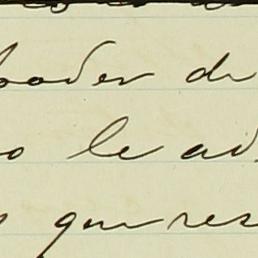 poder de
o le ad
que res